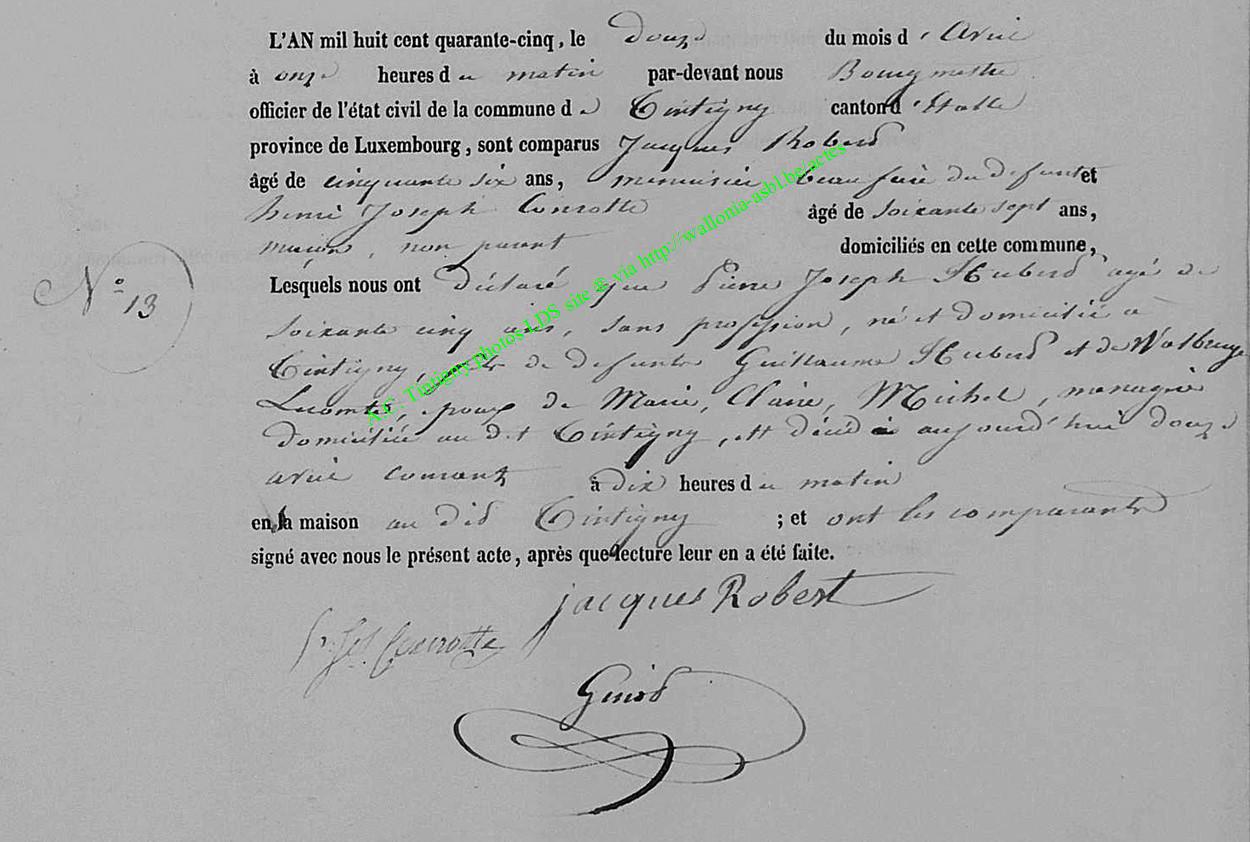 L'AN mil huit cent quarante-cinq, le douze du mois d'Avril
à onze heures du matin par-devant nous Bourgmestre
officier de l'état civil de la commune de Tintigny canton d'Etalle
province de Luxembourg, sont comparus Jacques Robert
âgé de cinquante six ans, menuisier beau frère du défunt et
henri Joseph Conrotte âgé de soixante sept ans,
maçon, non parent domiciliés en cette commune,
N° 13
Lesquels nous ont déclaré que Pierre Joseph Hubert agé de
soixante cinq ans, sans profession, né et domicilié à
Tintigny, fils de defunts Guillaume Hubert et de Walburge
Lecomte, epoux de Marie, Claire, Michel, menagère
domiciliée au dit Tintigny, est décédé aujourd'hui douze
avril courant à dix heures du matin
en sa maison au dit Tintigny ; et ont les comparants
signé avec nous le présent acte, après que lecture leur en a été faite.
jacques Robert
Conrotte
A.C. Tintigny photos LDS site © via http://wallonia-asbl.be/actes